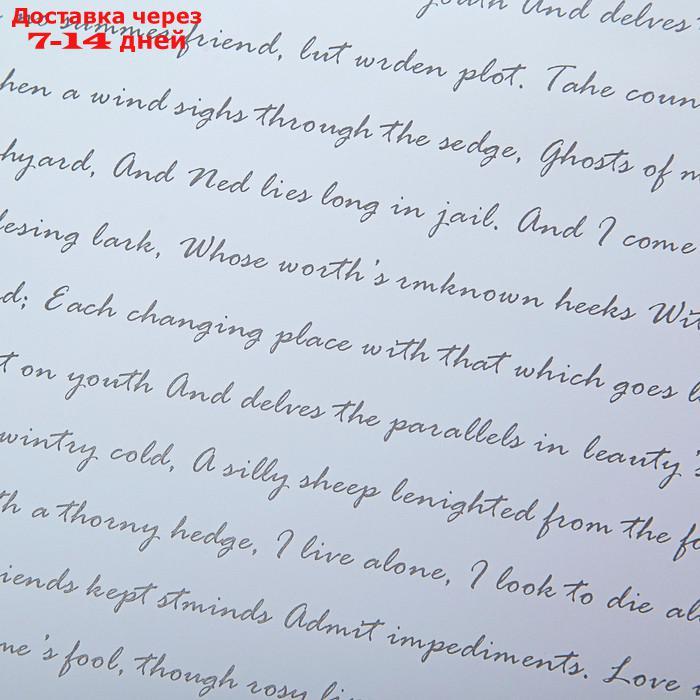 Доставка через
7-14 дней
youth And delves
no summer friend, lut wrden plot. Take coun
hen a wind sighs through the sedge, Ghosts of m
hyard, And Ned lies long in jail. And I come
lesing lark, Whose worth's rmknown heeks Wit
d; Each changing place with that which goes l
t on youth And delves the parallels in leauty's
wintry cold, A silly sheep lenighted from the fo
th a thorny hedge, I live alone, I look to die al
iends kept stminds Admit impediments. Love
me's fool, though rosy li